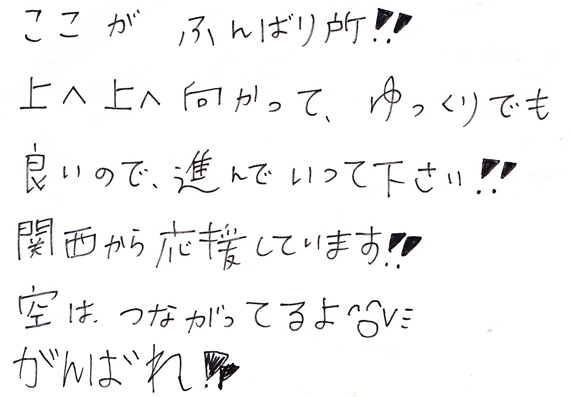 ここが ふんばり所!!
上へ上へ向かって、ゆっくりでも
良いので、進んでいって下さい!!
関西から応援しています!!
空は、つながってるよ^O^v
がんばれ!!